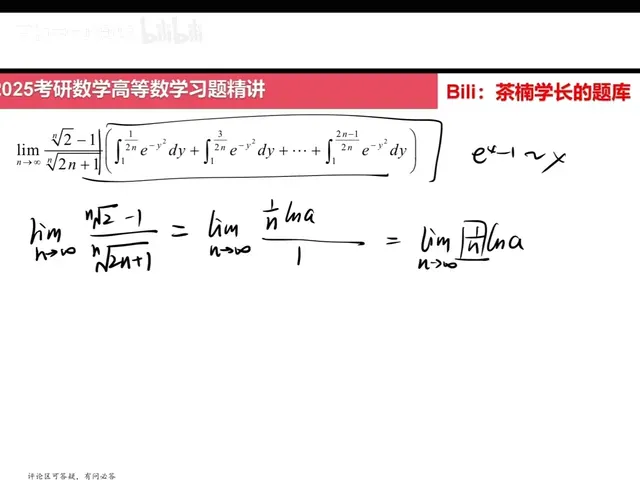 bilibili
2025考研数学高等数学习题精讲
Bili：茶楠学长的题库
lim_{n→∞} \frac{\sqrt[n]{2}-1}{\sqrt[n]{2n+1}} ( ∫_1^{\frac{1}{2n}} e^{-y^2} dy + ∫_1^{\frac{3}{2n}} e^{-y^2} dy + ⋯ + ∫_1^{\frac{2n-1}{2n}} e^{-y^2} dy )
e^x-1~x
lim_{n→∞} \frac{\sqrt[n]{2}-1}{\sqrt[n]{2n+1}} = lim_{n→∞} \frac{\frac{1}{n} ln a}{1} = lim_{n→∞} \frac{1}{n} ln a
评论区可答疑，有问必答